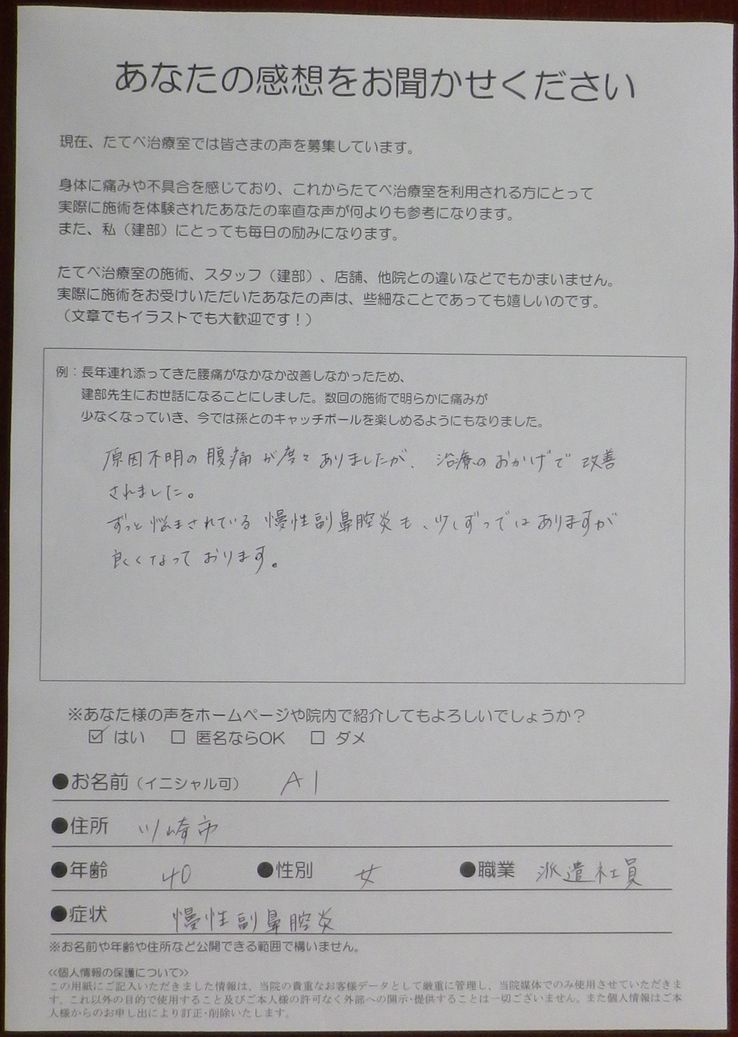 あなたの感想をお聞かせください
現在、たてべ治療室では皆さまの声を募集しています。
身体に痛みや不具合を感じており、これからたてべ治療室を利用される方にとって
実際に施術を体験されたあなたの率直な声が何よりも参考になります。
また、私（建部）にとっても毎日の励みになります。
たてべ治療室の施術、スタッフ（建部）、店舗、他院との違いなどでもかまいません。
実際に施術をお受けいただいたあなたの声は、些細なことであっても嬉しいのです。
（文章でもイラストでも大歓迎です！）
例：長年連れ添ってきた腰痛がなかなか改善しなかったため、
建部先生にお世話になることにしました。数回の施術で明らかに痛みが
少なくなっていき、今では孫とのキャッチボールを楽しめるようにもなりました。
原因不明の腹痛が度々ありましたが、治療のおかげで改善
されました。
ずっと悩まされている慢性副鼻腔炎も、少しずつではありますが
良くなっております。
※あなた様の声をホームページや院内で紹介してもよろしいでしょうか？
☑ はい □ 匿名ならOK □ ダメ
●お名前（イニシャル可） A I
●住所 川崎市
●年齢 40 ●性別 女 ●職業 派遣社員
●症状 慢性副鼻腔炎
※お名前や年齢や住所など公開できる範囲で構いません。
≪個人情報の保護について≫
この用紙にご記入いただきました情報は、当院の貴重なお客様データとして厳重に管理し、当院媒体でのみ使用させていただきま
す。これ以外の目的で使用すること及びご本人様の許可なく外部への開示・提供することは一切ございません。また個人情報はご本
人様からのお申し出により訂正・削除いたします。